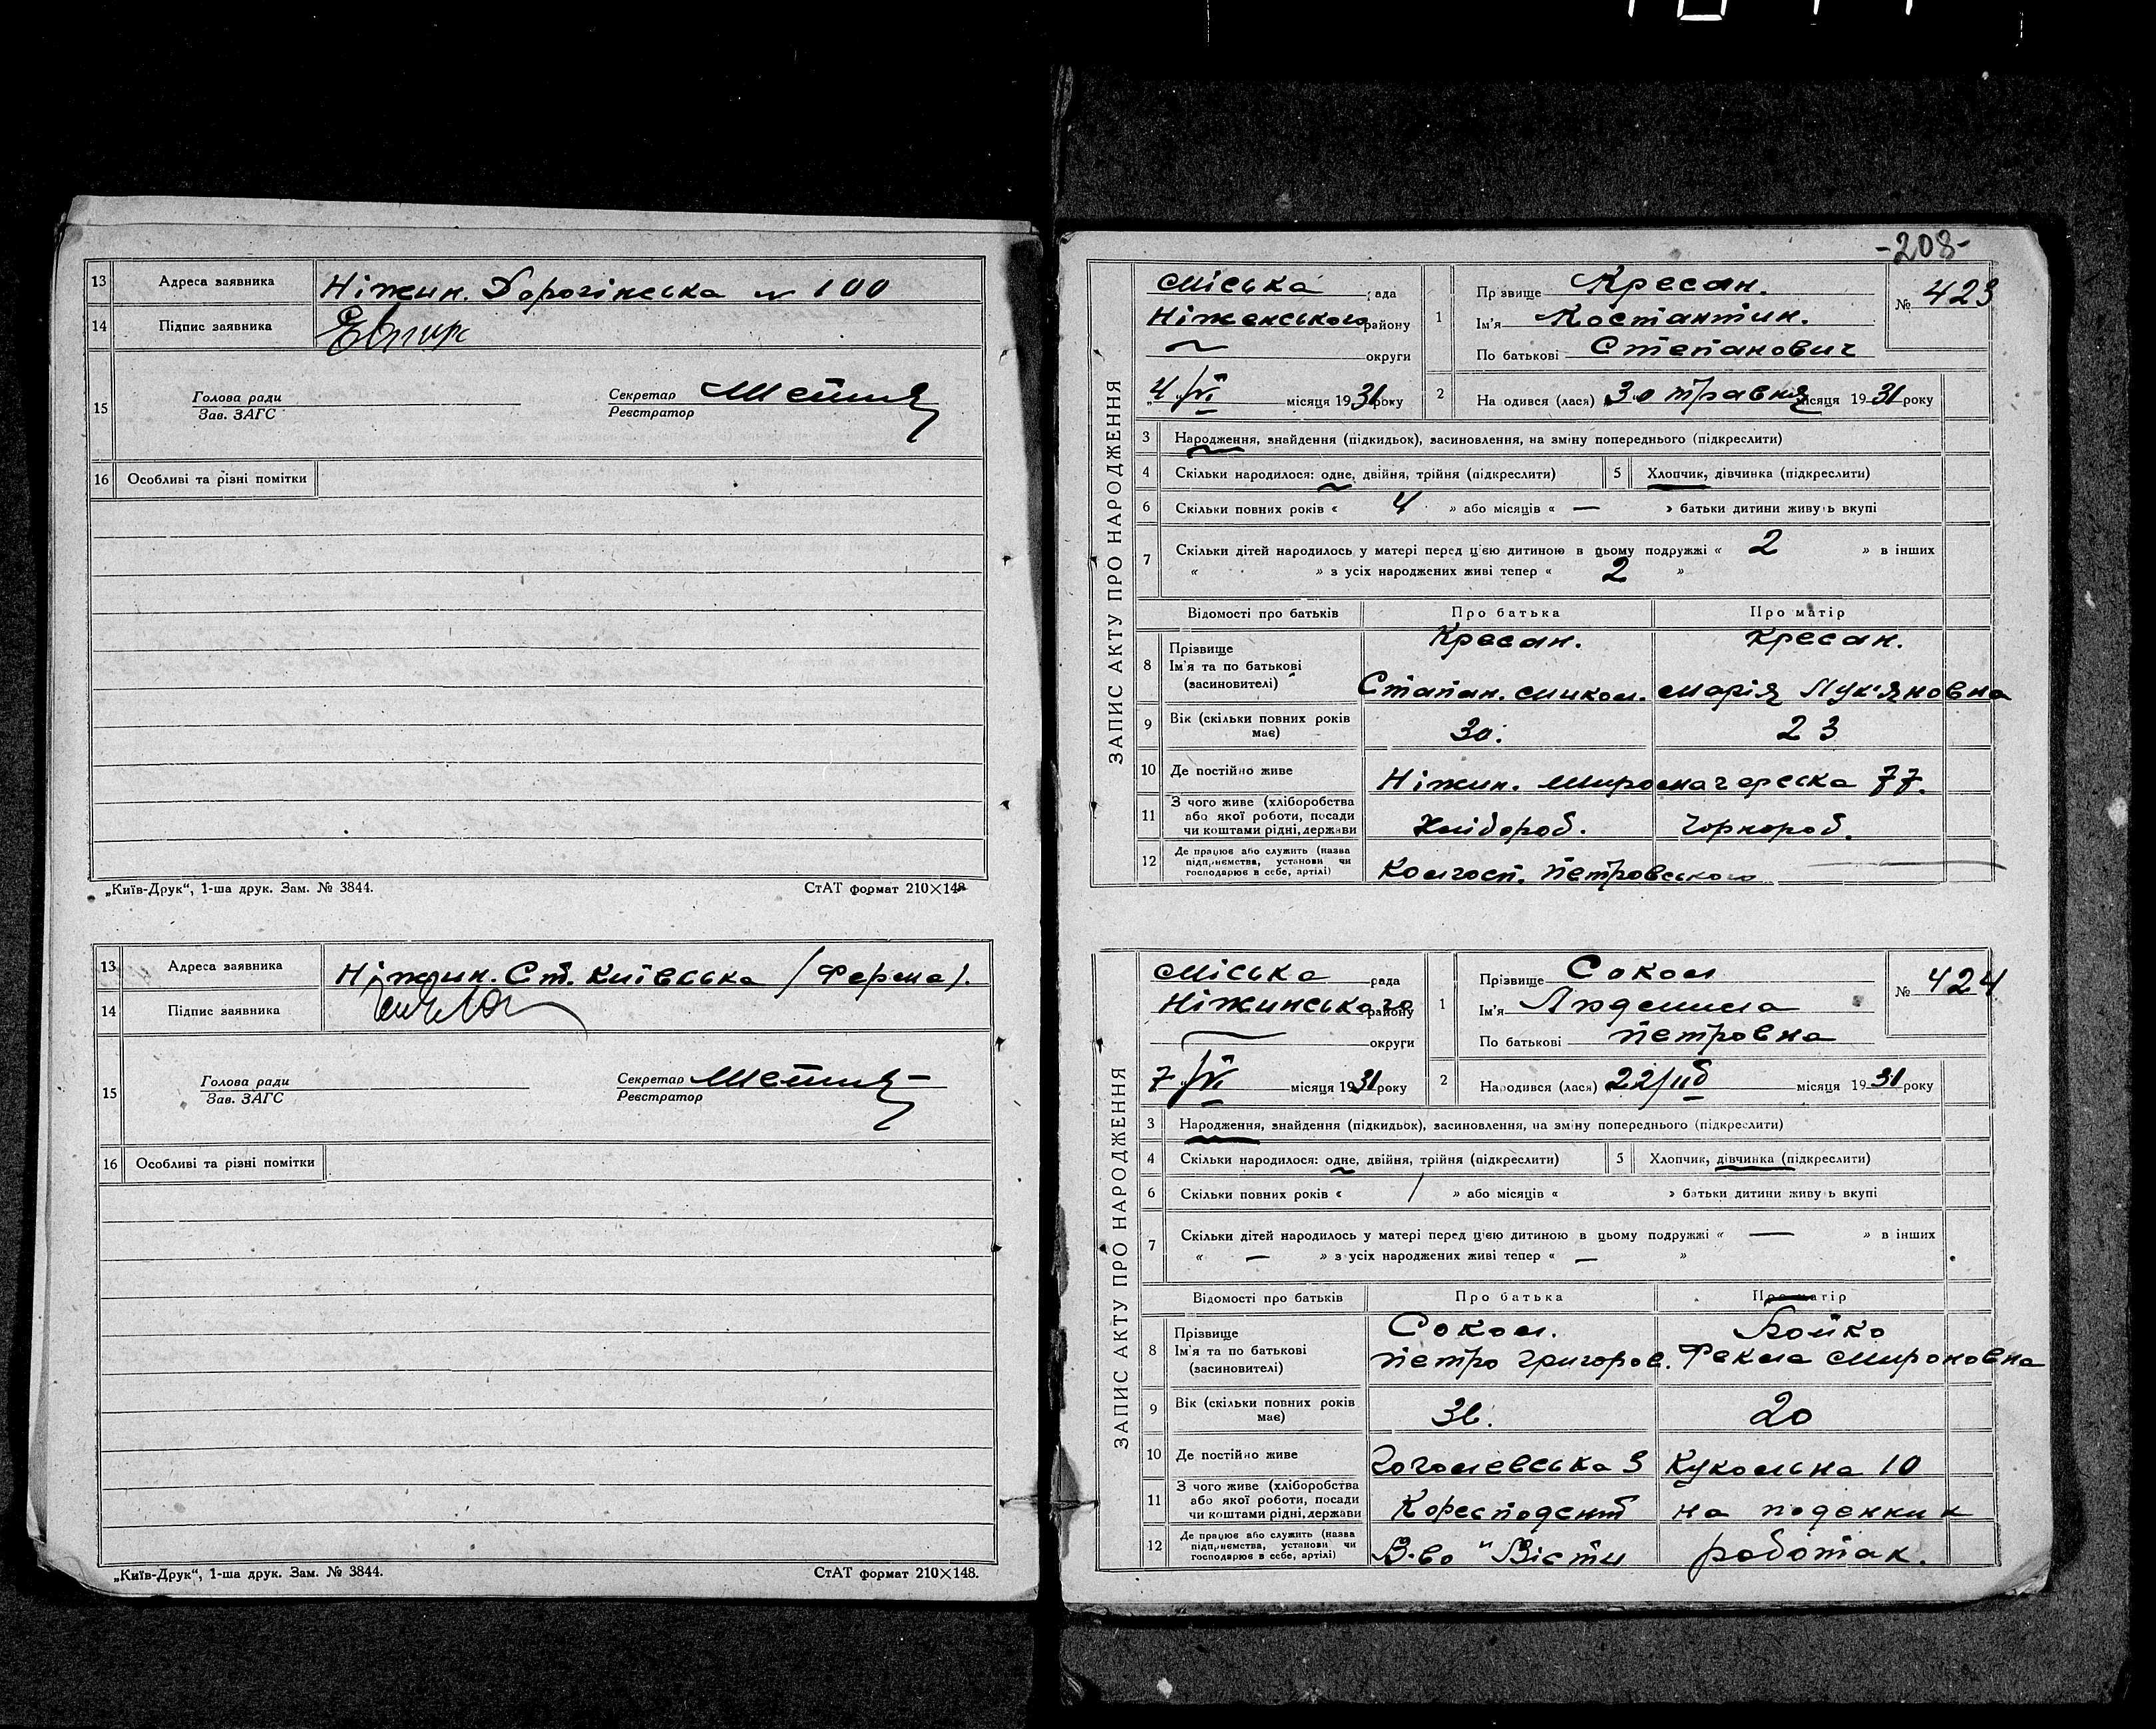 13 Адреса заявника Ніжин. Дорогінська № 100
14 Підпис заявника
15 Голова ради Секретар
Зав. ЗАГС Реєстратор
16 Особливі та різні помітки
„Київ-Друк“, 1-ша друк. Зам. № 3844. СтАТ формат 210×148
13 Адреса заявника Ніжин. Ст. Київська (Ферма).
14 Підпис заявника
15 Голова ради Секретар
Зав. ЗАГС Реєстратор
16 Особливі та різні помітки
„Київ-Друк“, 1-ша друк. Зам. № 3844. СтАТ формат 210×148.
-208-
ЗАПИС АКТУ ПРО НАРОДЖЕННЯ
Міська рада
Ніженського району
округи
„4“ VI місяця 1931 року
1 Прізвище Кресан.
Ім'я Костантин.
По батькові Степанович
№ 423
2 Народився (лася) 30 травня місяця 1931 року
3 Народження, знайдення (підкидьок), засиновлення, на зміну попереднього (підкреслити)
4 Скільки народилося: одне, двійня, трійня (підкреслити) 5 Хлопчик, дівчинка (підкреслити)
6 Скільки повних років « 4 » або місяців « — » батьки дитини живуть вкупі
7 Скільки дітей народилось у матері перед цією дитиною в цьому подружжі « 2 » в інших
« » з усіх народжених живі тепер « 2 »
Відомості про батьків Про батька Про матір
8 Прізвище Кресан. Кресан.
Ім'я та по батькові
(засиновителі) Стапан. Микол. Марія Лук'яновна
9 Вік (скільки повних років має) 30. 23
10 Де постійно живе Ніжин. 77.
11 З чого живе (хліборобства
або якої роботи, посади
чи коштами рідні, держави Хлібороб. Чорнороб.
12 Де працює або служить (назва
підприємства, установи чи
господарює в себе, артілі) Колгосп. Петровського —
ЗАПИС АКТУ ПРО НАРОДЖЕННЯ
Міська рада
Ніжинського району
округи
7 „VI місяця 1931 року
1 Прізвище Сокол
Ім'я Людмила
По батькові Петровна
№ 424
2 Народився (лася) 22/ місяця 1931 року
3 Народження, знайдення (підкидьок), засиновлення, на зміну попереднього (підкреслити)
4 Скільки народилося: одне, двійня, трійня (підкреслити) 5 Хлопчик, дівчинка (підкреслити)
6 Скільки повних років « / » або місяців « » батьки дитини живуть вкупі
7 Скільки дітей народилось у матері перед цією дитиною в цьому подружжі « — » в інших
« — » з усіх народжених живі тепер « — »
Відомості про батьків Про батька Про матір
8 Прізвище Сокол. Бойко
Ім'я та по батькові Петро Григоров. Фекла Мироновна
(засиновителі)
9 Вік (скільки повних років має) 36. 20
10 Де постійно живе Гоголевська 3 Кукольна 10
11 З чого живе (хліборобства
або якої роботи, посади
чи коштами рідні, держави Коресподент на поденних
12 Де працює або служить (назва
підприємства, установи чи
господарює в себе, артілі) В-во "Вісти роботах.